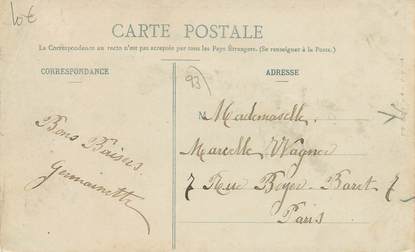 lot
CARTE POSTALE
La Correspondance au recto n'est pas acceptée par tous les Pays Étrangers. (Se renseigner à la Poste.)
CORRESPONDANCE
ADRESSE
93
Bons Baisers.
Germainette
M Mademoselle.
Marcelle Wagner
7 Rue Boyer-Barret 7
Paris